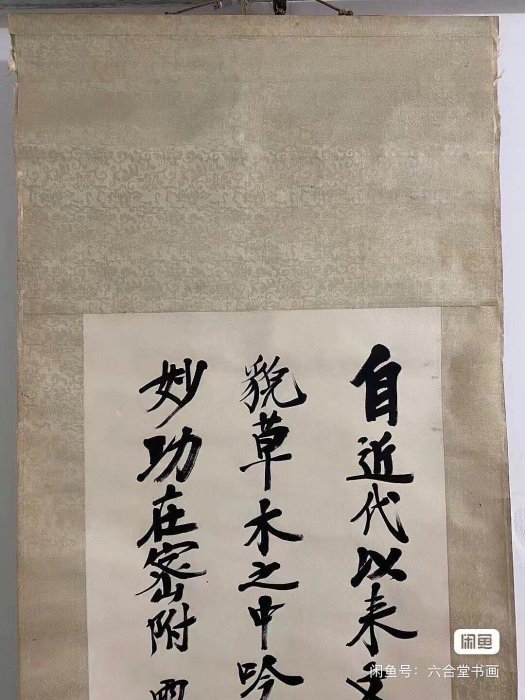 自近代以来
貌草木之中吟
妙功在密附
闲鱼
闲鱼号：六合堂书画